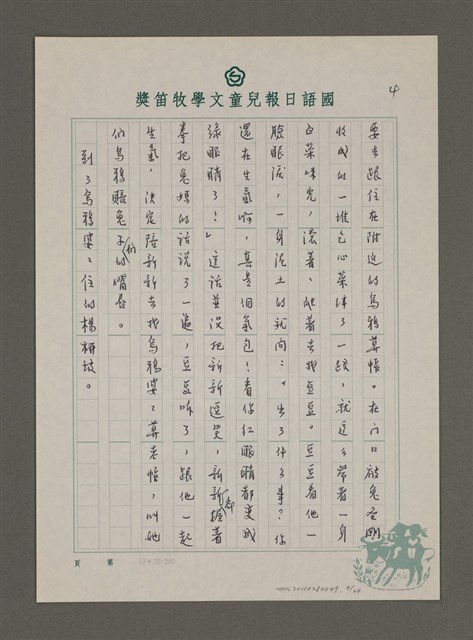 獎笛牧學文童兒報日語國
4
要去跟住在附近的烏鴉算帳。在門口被兔爸剛
收成的一堆包心菜絆了一跤，就這麼帶着一身
白菜味兒，滾著、爬著去找豆豆。豆豆看他一
臉眼淚，一身泥土的就問：「出了什么事？你
還在生氣啊，真是個氣包！看你紅眼睛都變成
綠眼睛了！」這話並沒把新新逗笑，新新卻握着
拳把兔媽的話說了一遍，豆豆聽了，跟他一起
生氣，決定陪新新去找烏鴉婆婆算老帳，叫她
們烏鴉賠兔子們的嘴唇。
到了烏鴉婆婆住的楊樹坡。
第
頁